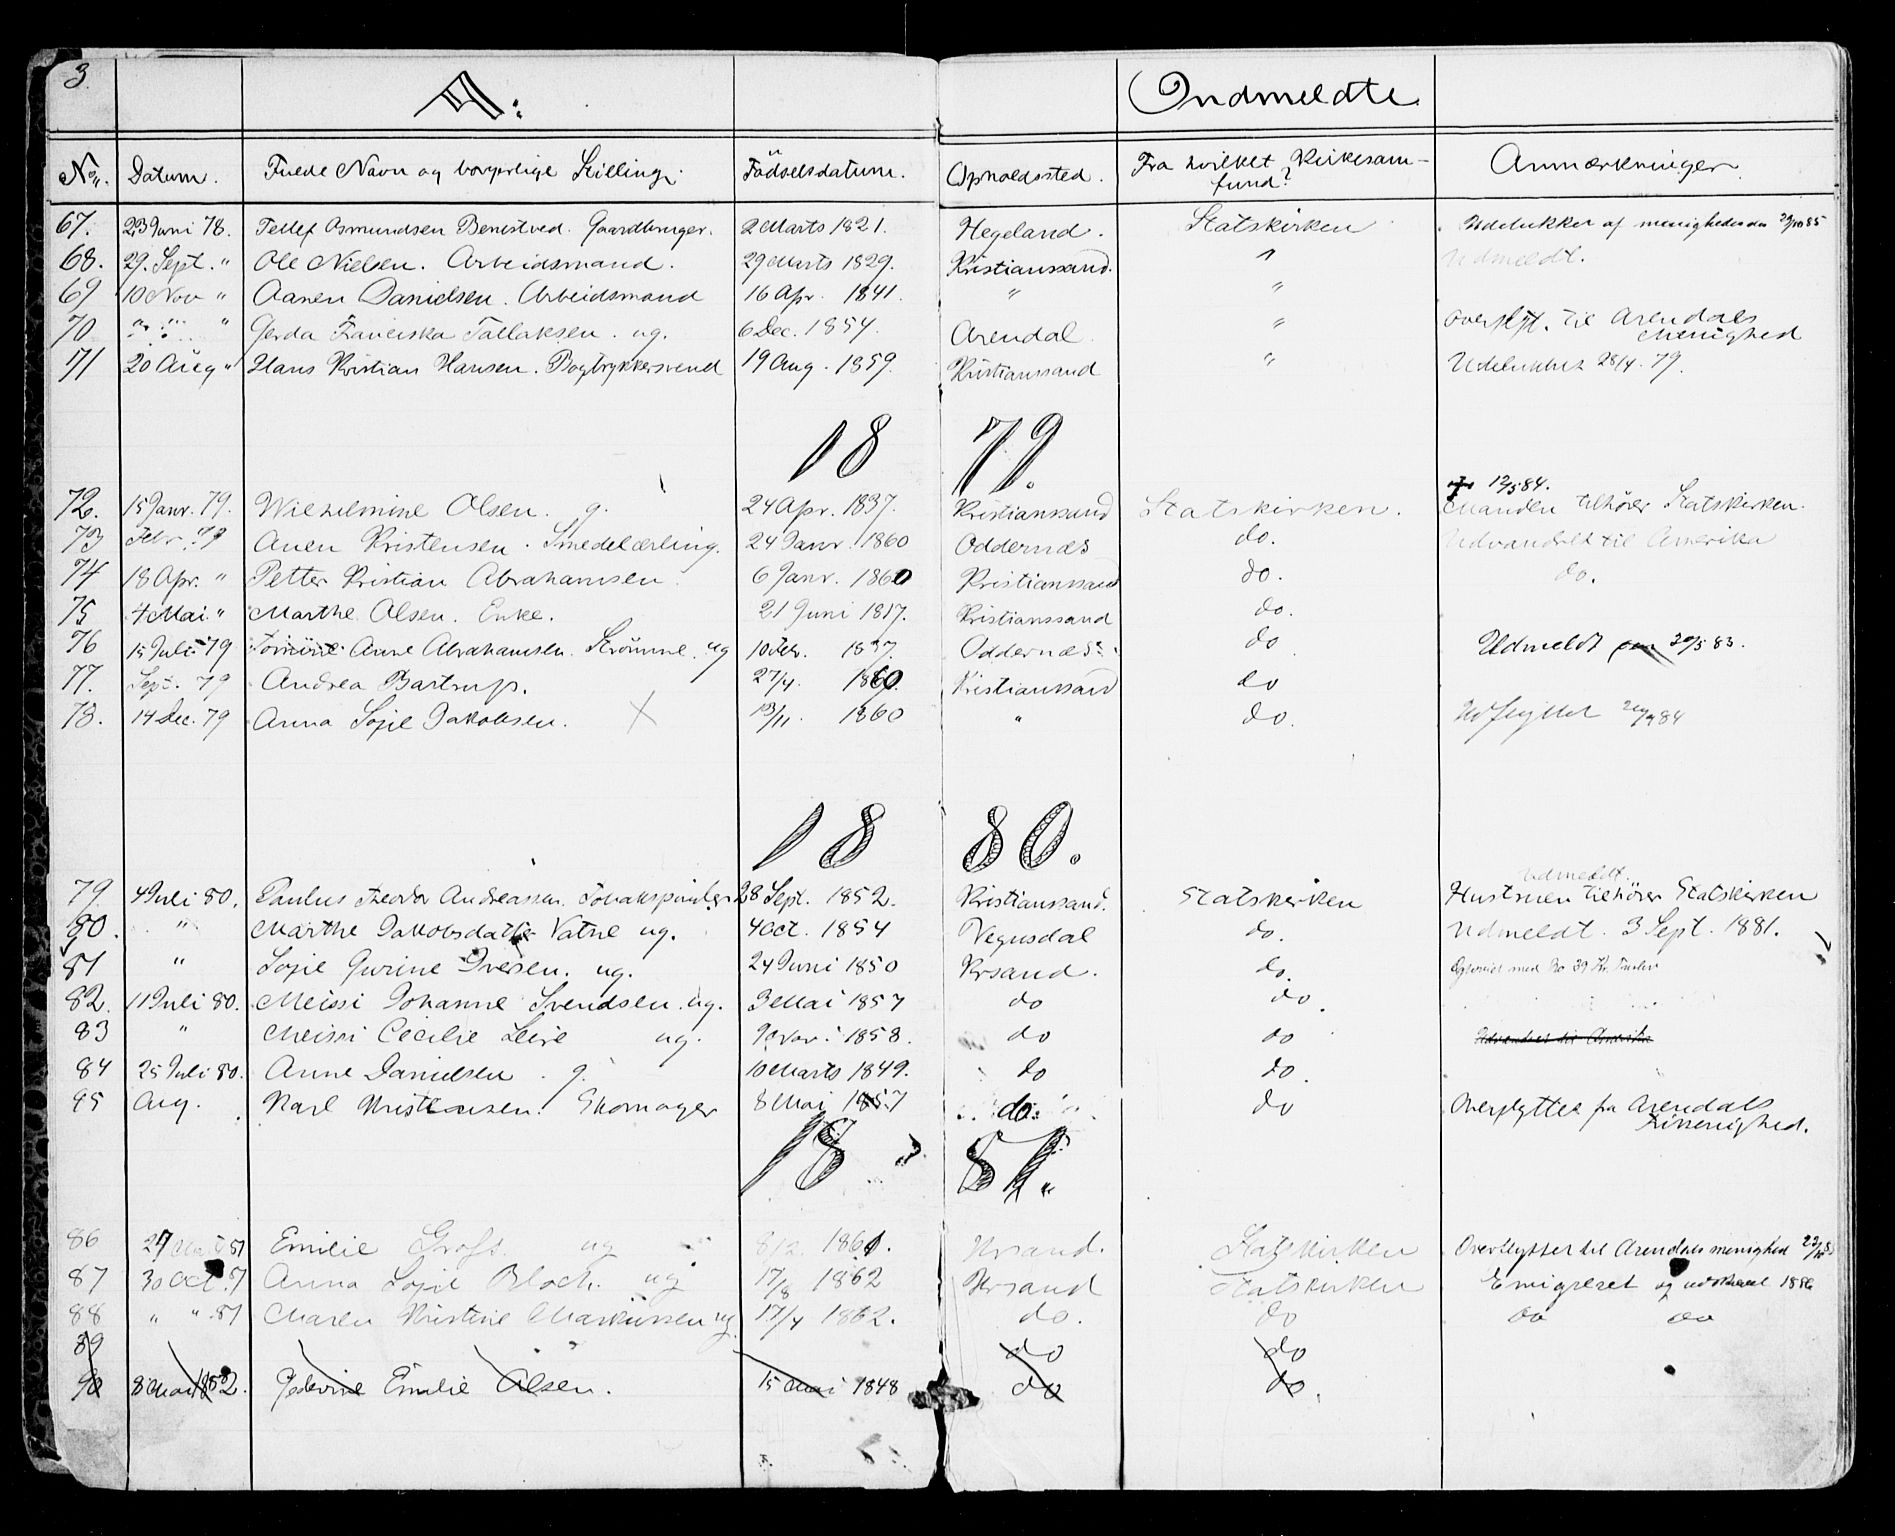 3.
A:
Indmeldte
No. Datum. Fulde Navn og borgerlige Stilling. Födselsdatum. Opholdssted. Fra hvilket Kirkesam-
fund? Anmærkninger.
67. 23 Juni 78. Tellef Osmundsen Benestved. Gaardbruger. 2 Marts 1821. Hegeland. Statskirken Udelukket af menigheden 29/10 85
68. 29. Sept. " Ole Nielsen. Arbeidsmand. 29 Marts 1829. Kristianssand. " Udmeldt.
69 10 Nov " Aanen Danielsen. Arbeidsmand 16 Apr. 1841. " "
70 " " " Gerda Franciska Tallaksen. ug. 6 Dec. 1854. Arendal " Overflyt. til Arendals
Menighed
71 20 Aug " Hans Kristian Hansen. Bogtrykkersvend 19 Aug. 1859. Kristianssand " Udelukket 28/4. 79.
18 79.
12/5 84.
72. 15 Janr. 79. Wilhelmine Olsen. g. 24 Apr. 1837. Kristianssand Statskirken. Manden tilhører Statskirken.
73 Febr. 79 Anen Kristensen. Smedelærling. 24 Janr. 1860 Oddernæs do. Udvandret til Amerika
74 18 Apr. " Petter Kristian Abrahamsen. 6 Janr. 1860 Kristianssand do. do.
75 4 Mai " Marthe Olsen. Enke. 21 Juni 1817. Kristianssand do.
76 15 Juli 79 Anne Abrahamsen. Strømme. ug 10 Febr. 1837. Oddernæs do Udmeldt 20/5 83.
77. Sept. 79 Andrea Bastrup. 27/4. 1860. Kristianssand do
78. 14 Dec. 79 Anna Sofie Jakobsen. X 13/11. 1860 " do. Udflyttet 84
18 80.
Udmeldt.
79. 4 Juli 80. Paulus Theodor Andreassen. Tobakspinder 28 Sept. 1852. Kristianssand. Statskirken Hustruen tilhører Statskirken
80. " Marthe Jakobsdatter Vatne ug. 4 Oct. 1854 Vegusdal do. Udmeldt. 3 Sept. 1881.
81 " Sofie Gurine Iversen. ug. 24 Juni 1850 Krsand. do. med No 39
82. 11 Juli 80. Meissi Johanne Svendsen. ug. 3 Mai 1857 do do.
83 " Meissi Cecilie Leire ug. 9 Nov. 1858. do do Udvandret til Amerika
84 25 Juli 80. Anne Danielsen. g. 10 Marts 1849. do do.
95 Aug. Karl Kristensen. Skomager 8 Mai 1857 do. do Overflyttet fra Arendals
Menighed.
18 81.
86 27 81 Emilie Groft. ug 8/2 1861. Krsand. Statskirken Overflyttet til Arendals menighed
87 30 Oct. Anna Sofie Bloch. ug 17/8 1862 Krsand Statskirken Emigreret og udmeldt 1886
88 " " 81 Maren Kristine Markussen ug. 17/4 1862. do. do do do
89 do do
90 8 Mai 1882. Gedevine Emilie Olsen. 15 Mai 1848 do do.